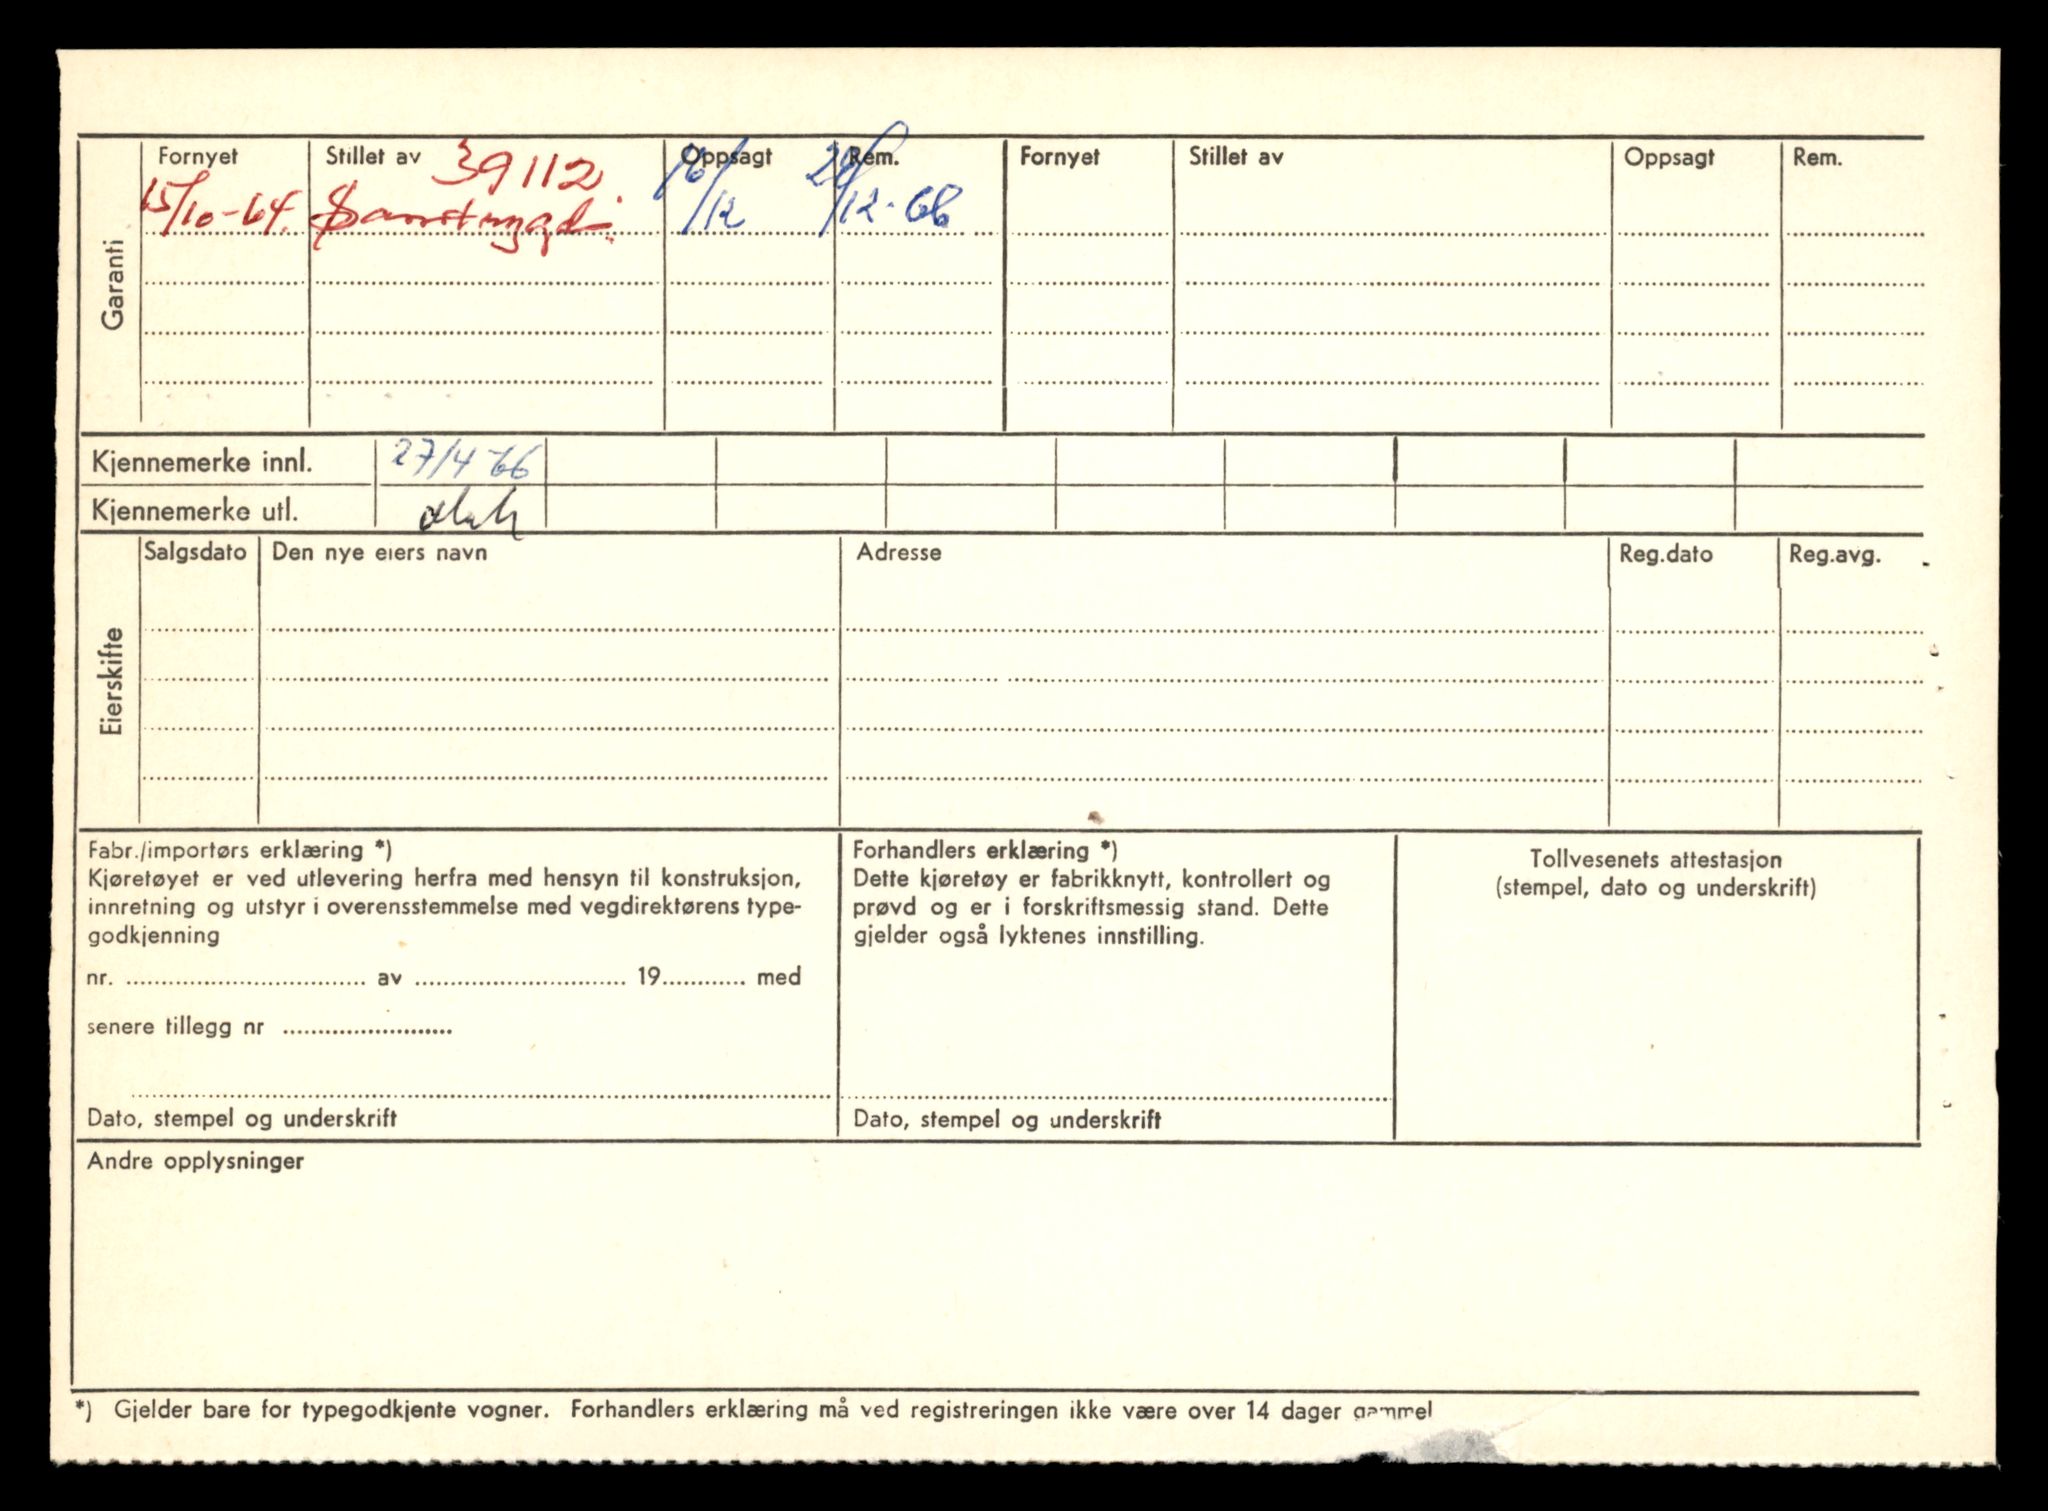 Garanti
Fornyet Stillet av 39112 Oppsagt Rem. Fornyet Stillet av Oppsagt Rem.
15/10-64. Samtrygd. 16/12 29/12-66
Kjennemerke innl. 27/4-66
Kjennemerke utl.
Eierskifte
Salgsdato Den nye eiers navn Adresse Reg.dato Reg.avg.
Fabr./importørs erklæring *)
Kjøretøyet er ved utlevering herfra med hensyn til konstruksjon,
innretning og utstyr i overensstemmelse med vegdirektørens type-
godkjenning
nr. ............ av ............ 19......... med
senere tillegg nr ............
Dato, stempel og underskrift
Forhandlers erklæring *)
Dette kjøretøy er fabrikknytt, kontrollert og
prøvd og er i forskriftsmessig stand. Dette
gjelder også lyktenes innstilling.
Dato, stempel og underskrift
Tollvesenets attestasjon
(stempel, dato og underskrift)
Andre opplysninger
*) Gjelder bare for typegodkjente vogner. Forhandlers erklæring må ved registreringen ikke være over 14 dager gammel